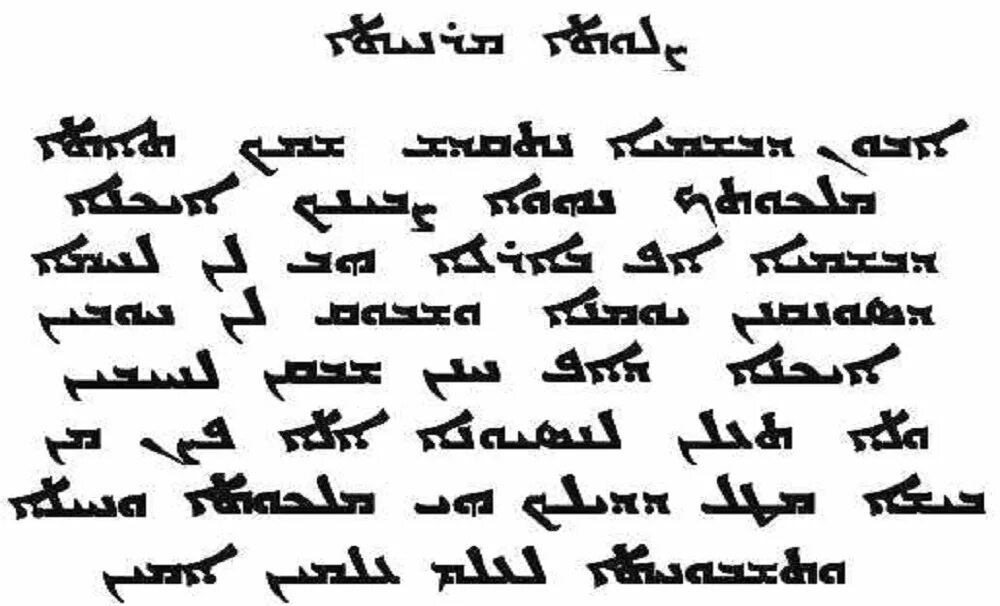 ܨܠܘܬܐ ܡܪܢܝܬܐ
ܐܒܘܢ ܕܒܫܡܝܐ ܢܬܩܕܫ ܫܡܟ ܬܐܬܐ
ܡܠܟܘܬܟ ܢܗܘܐ ܨܒܝܢܟ ܐܝܟܢܐ
ܕܒܫܡܝܐ ܐܦ ܒܐܪܥܐ ܗܒ ܠܢ ܠܚܡܐ
ܕܣܘܢܩܢܢ ܝܘܡܢܐ ܘܫܒܘܩ ܠܢ ܚܘܒܝܢ
ܐܝܟܢܐ ܕܐܦ ܚܢܢ ܫܒܩܢ ܠܚܝܒܝܢ
ܘܠܐ ܬܥܠܢ ܠܢܣܝܘܢܐ ܐܠܐ ܦܨܢ ܡܢ
ܒܝܫܐ ܡܛܠ ܕܕܝܠܟ ܗܝ ܡܠܟܘܬܐ ܘܚܝܠܐ
ܘܬܫܒܘܚܬܐ ܠܥܠܡ ܥܠܡܝܢ ܐܡܝܢ